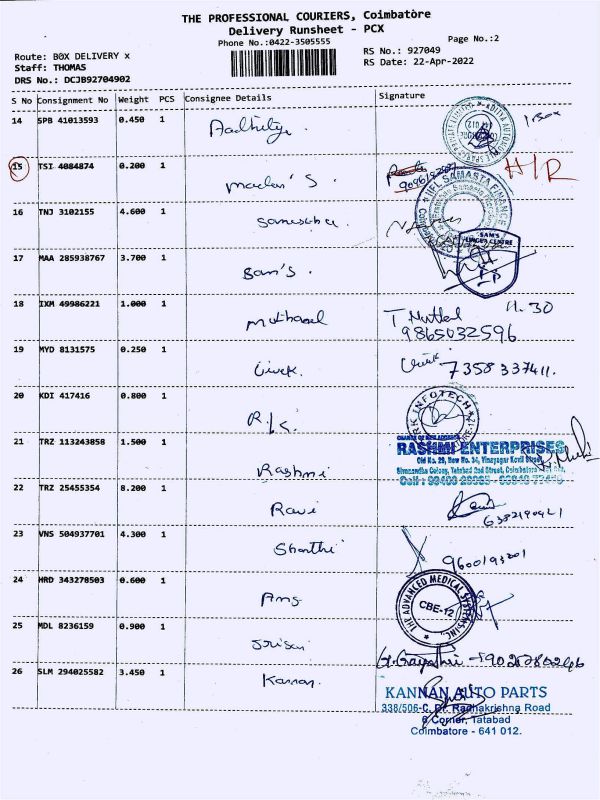 THE PROFESSIONAL COURIERS, Coimbatore
Delivery Runsheet - PCX
Phone No.:0422-3505555
Page No.:2
Route: BOX DELIVERY x
Staff: THOMAS
DRS No.: DCJB92704902
RS No.: 927049
RS Date: 22-Apr-2022
S No Consignment No Weight PCS Consignee Details Signature
14 SPB 41013593 0.450 1 Aadhitya 1 Box
15 TSI 4084874 0.200 1 H/R
IIFL SAMASTA FINANCE
16 TNJ 3102155 4.600 1
17 MAA 285938767 3.700 1 Sam's.
SAM'S
18 IXM 49986221 1.000 1 11.30
9865032596
19 MYD 8131575 0.250 1 Vivek. 7358337411.
20 KDI 417416 0.800 1 R.K.
RK INFOTECH
21 TRZ 113243858 1.500 1 Rashmi
RASHMI ENTERPRISES
Old No. 29, New No. 34, Vinayagar Kovil Street
Tatabad 2nd Street, Coimbatore
22 TRZ 25455354 8.200 1 Ravi
23 VNS 504937701 4.300 1 Shanthi
24 HRD 343278503 0.600 1 Ams
THE ADVANCED MEDICAL SYSTEMS INC.
CBE-12
25 MDL 8236159 0.900 1
26 SLM 294025582 3.450 1 Kannan.
KANNAN AUTO PARTS
338/506-C, Dr. Radhakrishna Road
6 Corner, Tatabad
Coimbatore - 641 012.